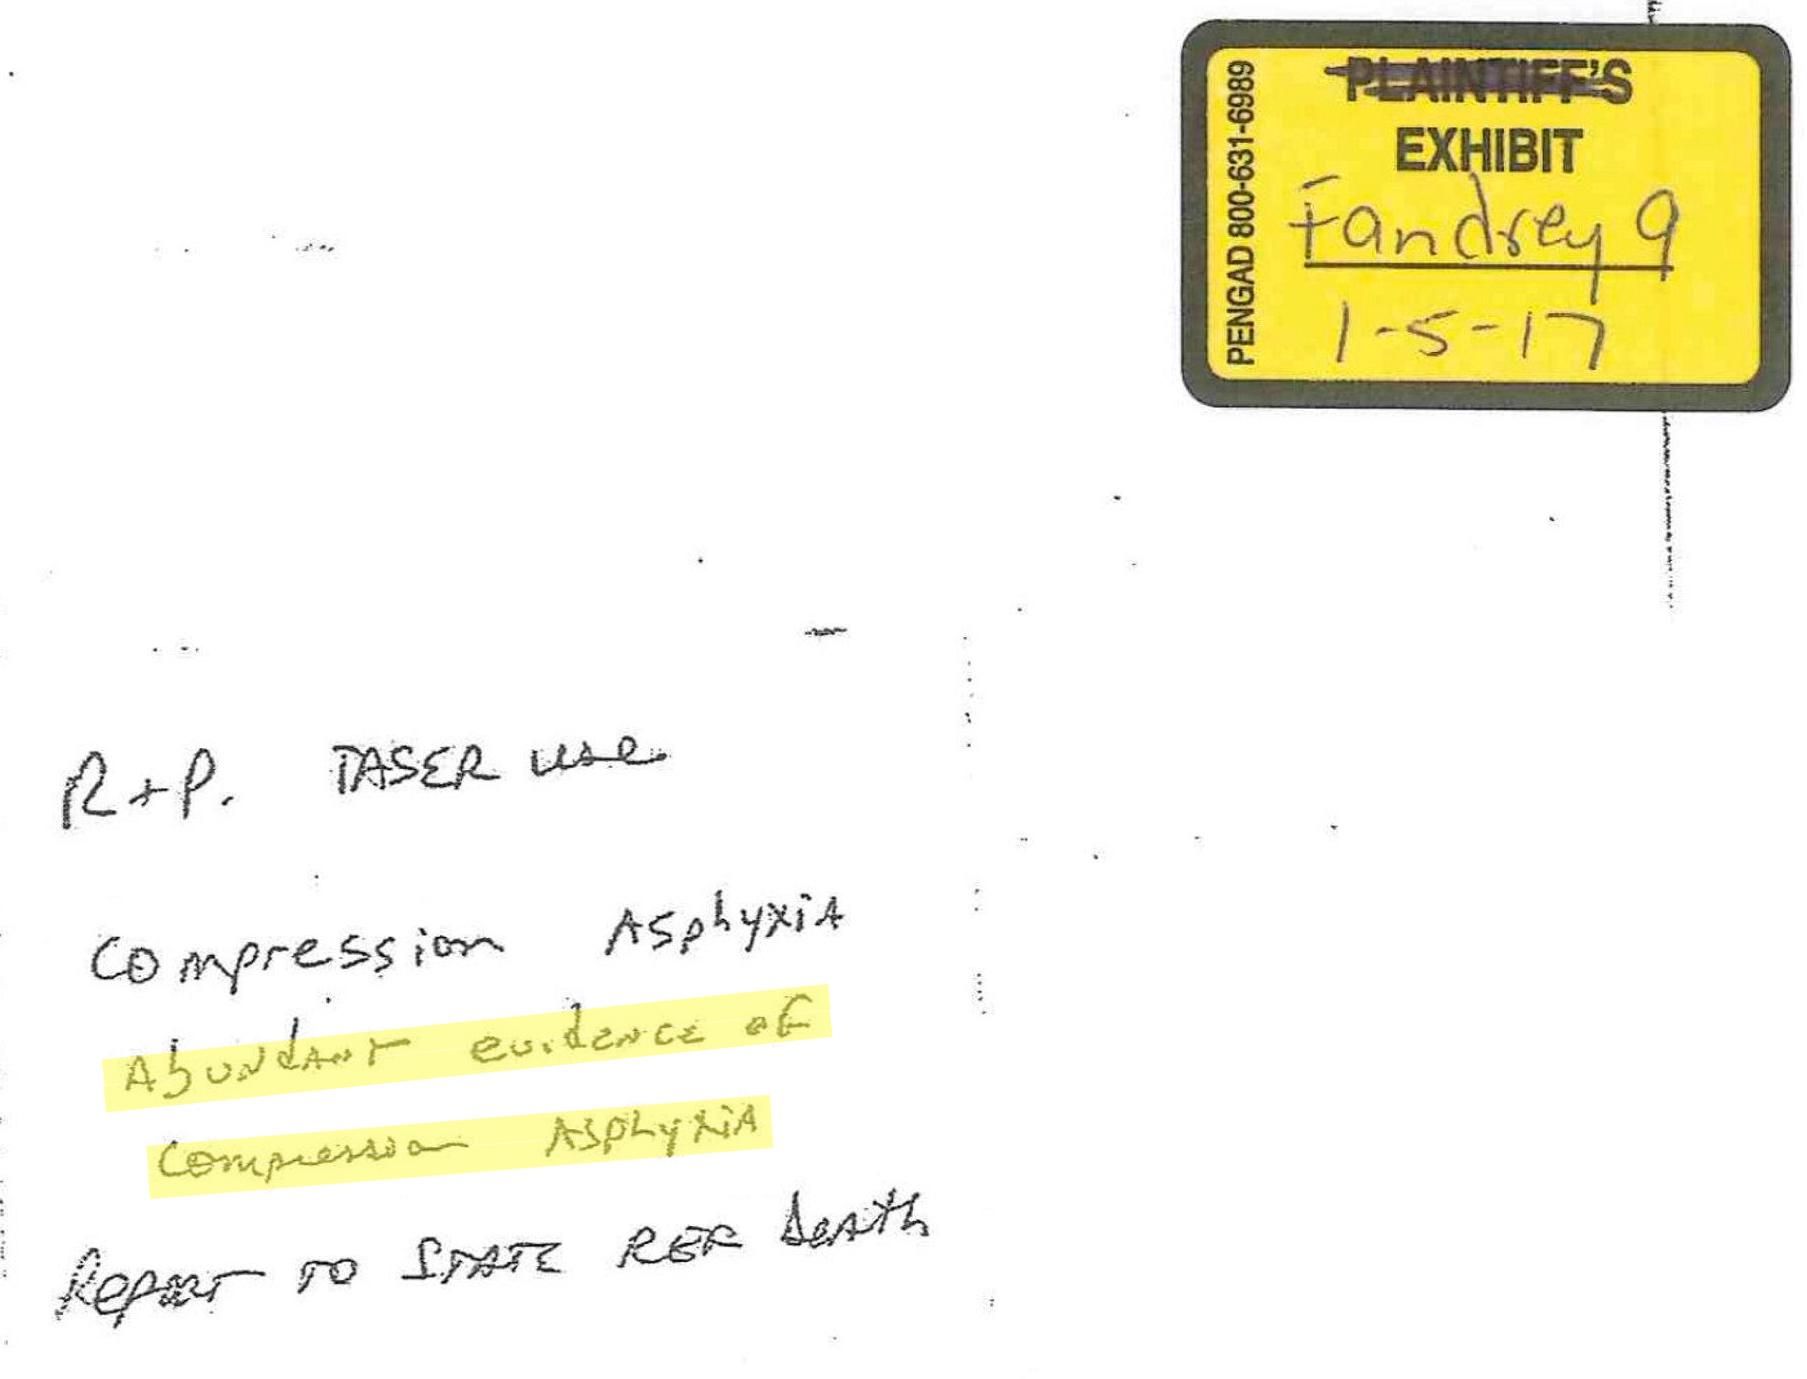 PLAINTIFF'S
EXHIBIT
Fandrey 9
1-5-17
PENGAD 800-631-6989
R+P. TASER use
Compression Asphyxia
Abundant evidence of
Compression Asphyxia
Report to STATE REF Death